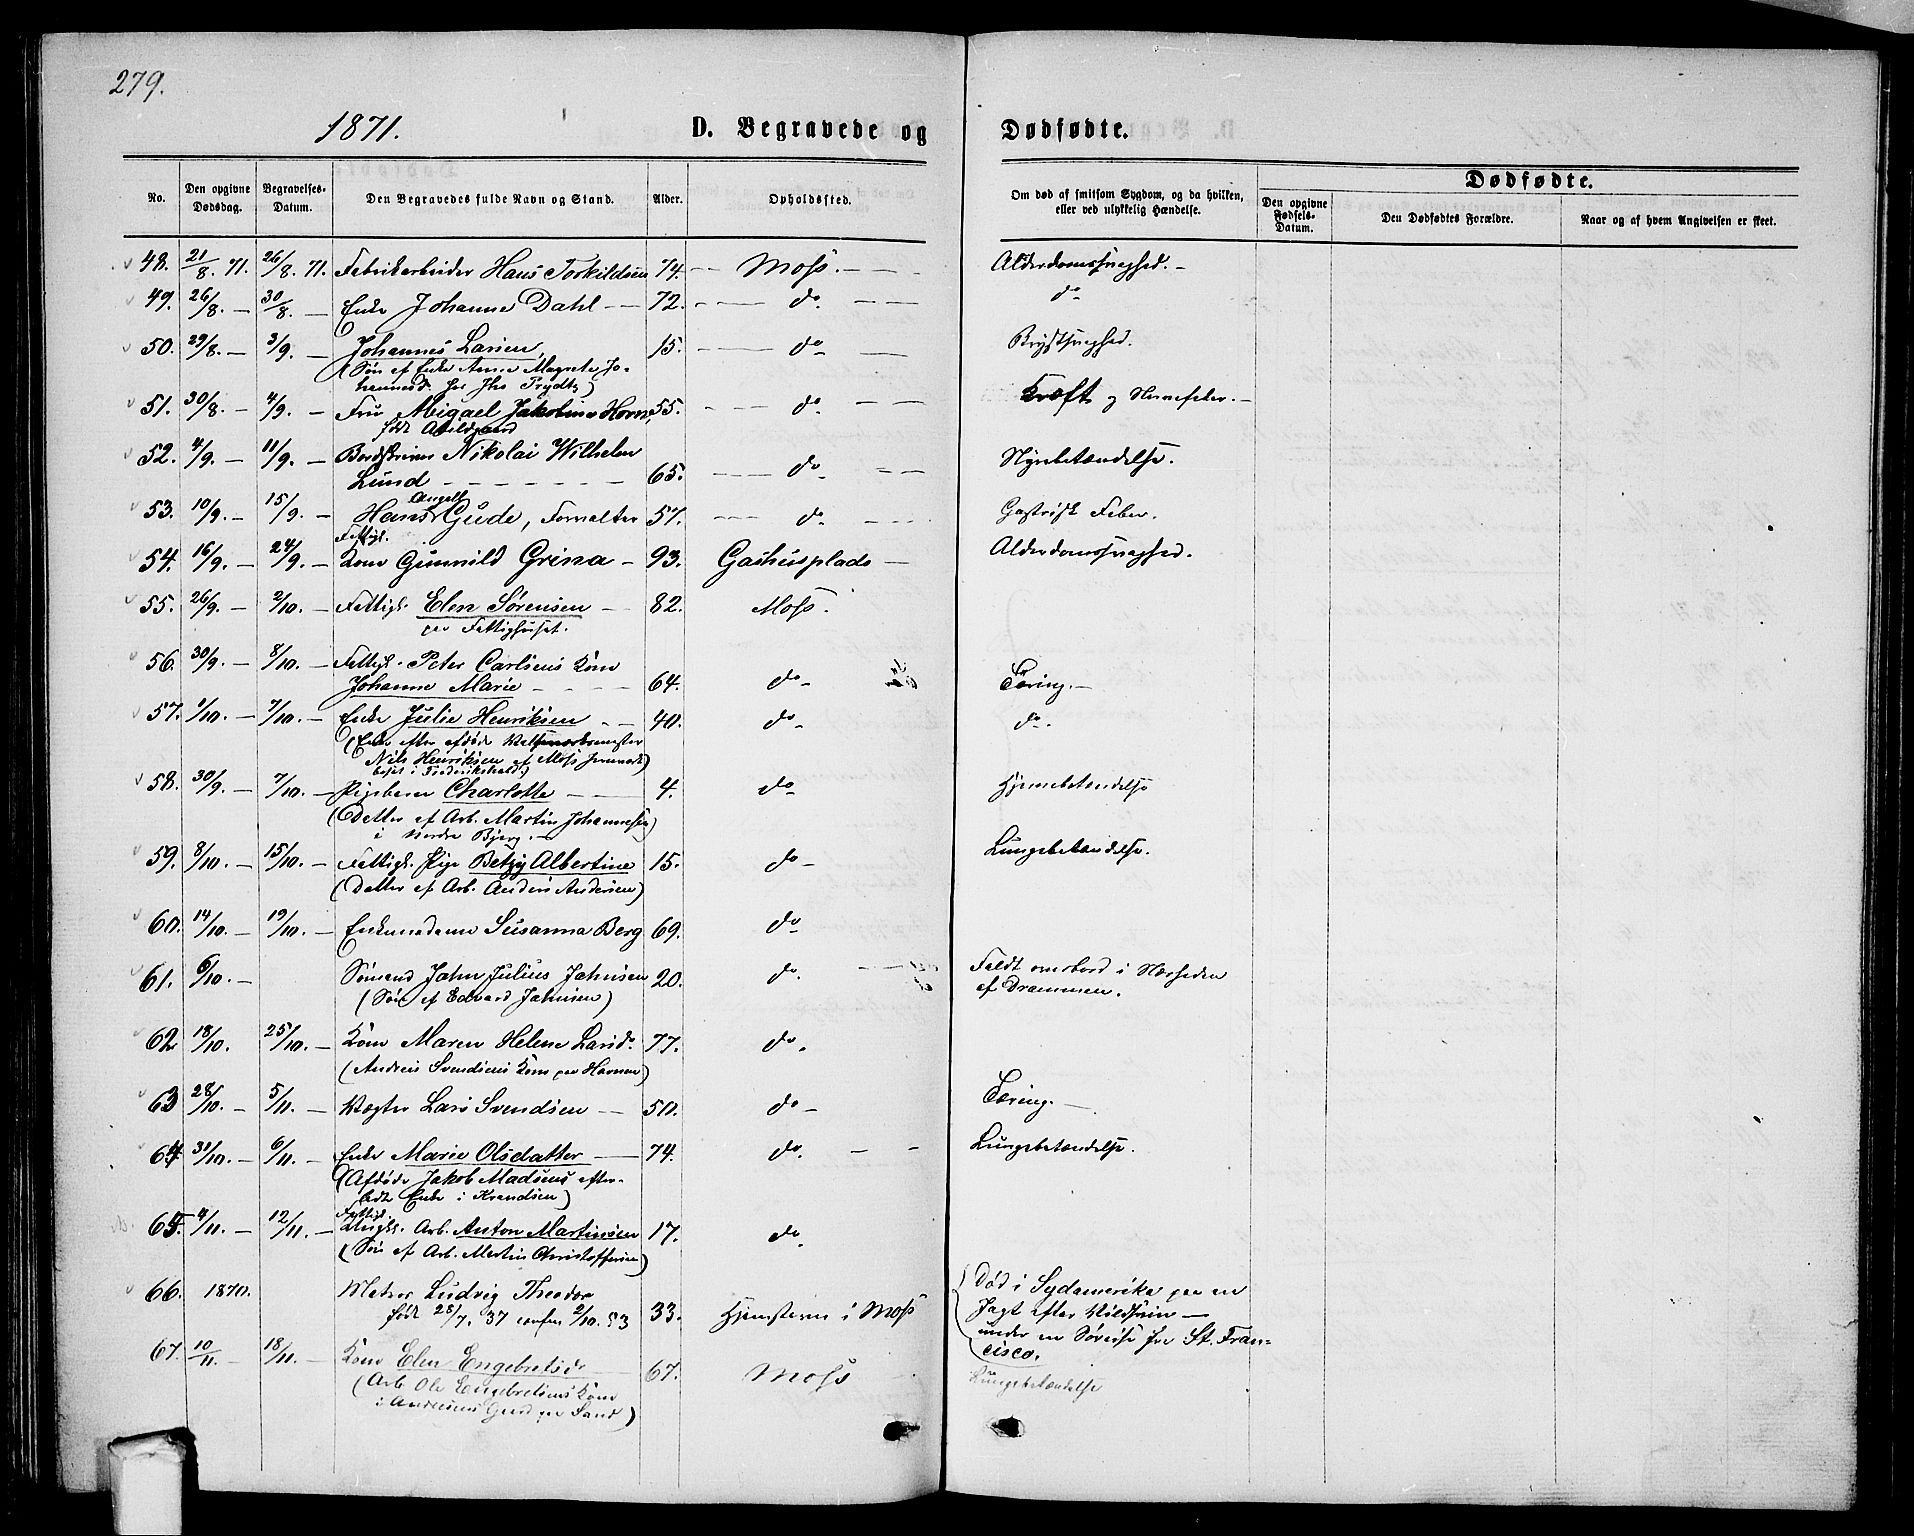 279.
1871.
D. Begravede og Dødfødte.
No. Den opgivne Dødsdag. Begravelses-Datum. Den Begravedes fulde Navn og Stand. Alder. Opholdssted. Om død af smitsom Sygdom, og da hvilken, eller ved ulykkelig Hændelse. Dødfødte. Den opgivne Fødsels-Datum. Den Dødfødtes Forældre. Naar og af hvem Angivelsen er skeet.
48. 21/8. 71. 26/8. 71. Fabrikarbeider Hans Torkildsen 74. Moss. Alderdomssvaghed.
49. 26/8. — 30/8. — Enke Johanne Dahl — 72. do. do
50. 29/8. — 3/9. — Johannes Larsen, 15. do Brystsvaghed.
(Søn af Enke Anne Magrete Jo-
hannesd. hos Jhs Trydts)
51. 30/8. — 4/9. — Fru Migael Jakobine Horn, 55. do. Kræft og Nervefeber.
født Abildgaard
52. 4/9. — 11/9. — Bordskriver Nikolai Wilhelm
Lund 65. do Nyrebetændelse.
53. 10/9. — 15/9. — Hans Angell Gude, Forvalter 57. do. Gastrisk Feber.
54. 16/9. — 24/9. — Fattigl. Kone Gunnild Grina — 93. Gashusplads Alderdomssvaghed.
55. 26/9. — 2/10. — Fattigl. Elen Sørensen 82. Moss.
paa Fattighuset.
56. 30/9. — 8/10. — Fattigl. Peter Carlsens Kone
Johanne Marie 64. do Tæring.
57. 1/10. — 7/10. — Enke Julie Henriksen 40. do do.
(Enke efter afdøde Valseværksmester
Nils Henriksen af Moss Jernverk)
bosat i Frederikshald)
58. 30/9. — 7/10. — Pigebarn Charlotte 4. do Hjernebetændelse
(Datter af Arb. Martin Johannesen)
i Nordre Bjerg.
59. 8/10. — 15/10. — Fattigl. Pige Betzy Albertine 15. do Lungebetændelse.
(Datter af Arb. Anders Andersen)
60. 14/10. — 19/10. — Enkemadame Susanna Berg 69. do
61. 6/10. — Sømand John Julius Johnsen 20. do. Faldt overbord i Nærheden
(Søn af Edvard Johnsen) af Drammen.
62 18/10. 25/10. — Kone Maren Helene Larsd. 77. do.
(Andreas Svendsens Kone paa Havnen)
63 28/10. — 5/11. — Vægter Lars Svendsen — 50. do Tæring.
64 31/10. — 6/11. — Enke Marie Olsdatter 74. do. Lungebetændelse.
(Afdøde Jakob Madsens efter-
ladte Enke i Krandsen)
65. 4/11. — 12/11. — Fattigl. Ungk. Arb. Anton Martinsen 17. do
(Søn af Arb. Martin Christoffersen)
66. 1870. Matros Ludvig Theodor (Død i Sydamerika paa en
født 28/7. 37 conf. 2/10. 53 33. Hjemstavn i Moss Jagt efter Vildsvin —
under en Søreise fra St. Fran-
cisco.
67. 10/11. — 18/11. — Kone Elen Engebretsd. 67. Moss Lungebetændelse
(Arb. Ole Engebretsens Kone
i Andersens Gaard paa Sand)